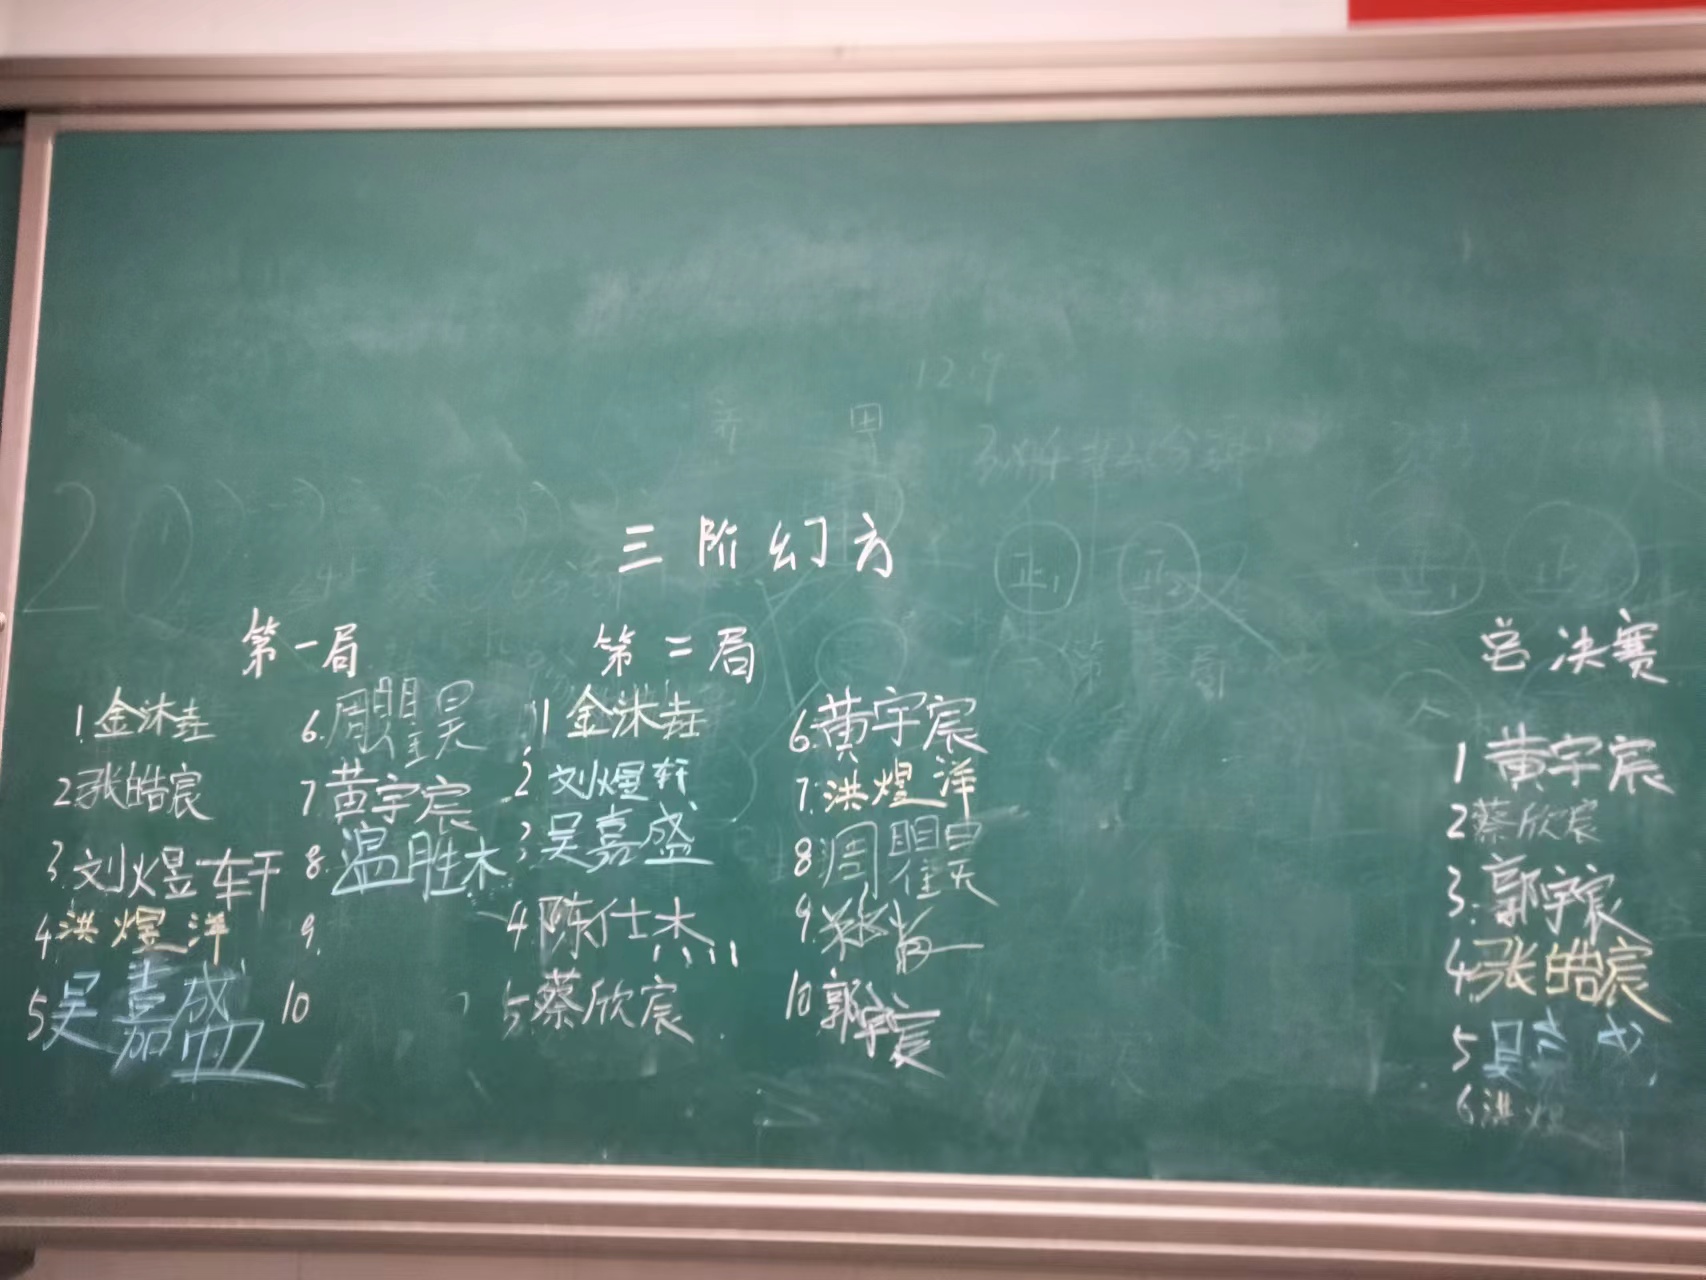 三阶幻方
第一局
1.金沐垚
2张皓宸
3.刘煜轩
4.洪煜洋
5吴嘉盛
6.周曌昊
7黄宇宸
8.温胜木
9.
10
第二局
1金沐垚
2刘煜轩
3吴嘉盛
4.陈仕杰
5蔡欣宸
6.黄宇宸
7.洪煜洋
8周曌昊
9.
10郭宇宸
总决赛
1黄宇宸
2蔡欣宸
3.郭宇宸
4.张皓宸
5吴
6.洪煜